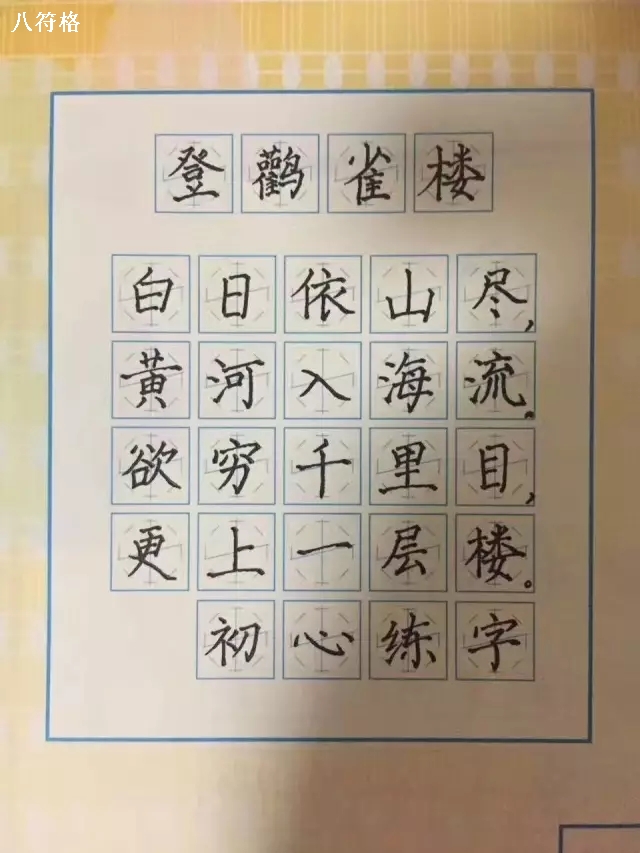 八符格
登鹳雀楼
白日依山尽,
黄河入海流。
欲穷千里目,
更上一层楼。
初心练字